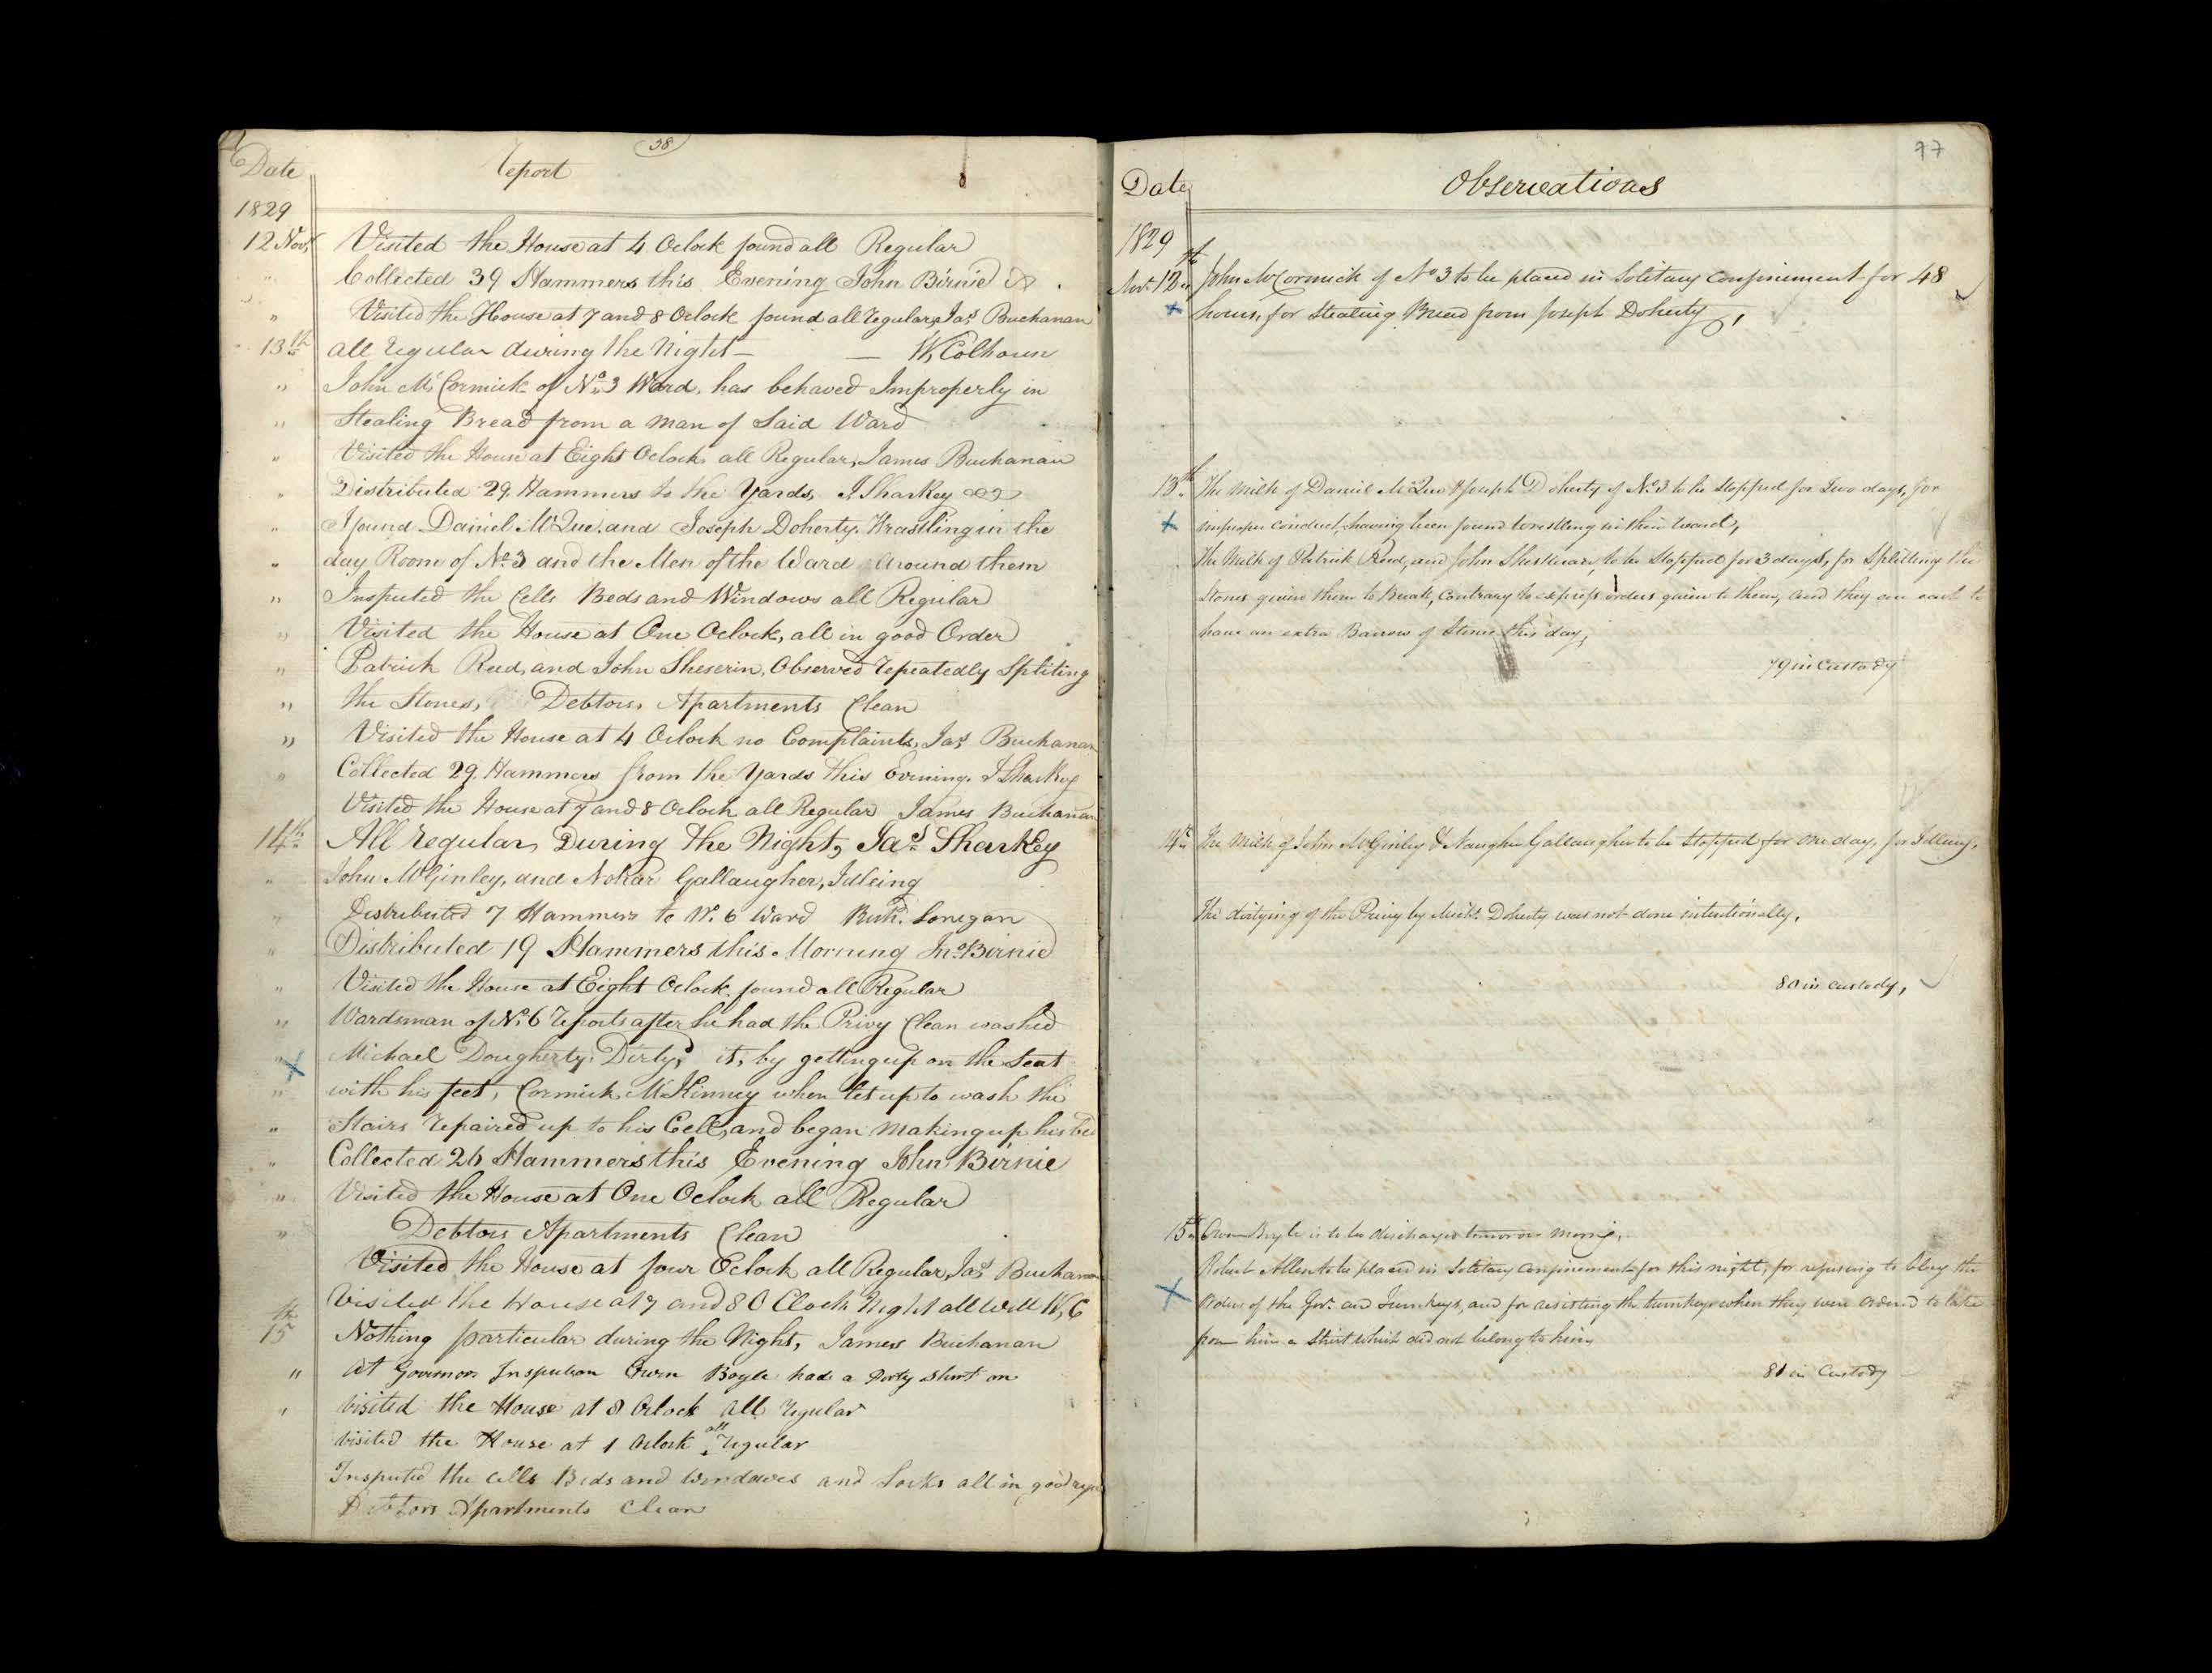 38
Date Report
1829
12 Nov. Visited the House at 4 Oclock found all Regular
" Collected 39 Hammers this Evening John Birnie
" Visited the House at 7 and 8 Oclock found all regular, Jas Buchanan
13th all regular during the Night — — W, Colhoun
" John McCormick of No 3 Ward, has behaved Improperly in
" Stealing Bread from a man of Said Ward
" Visited the House at Eight Oclock all Regular, James Buchanan
" Distributed 29 Hammers to the Yards, J Sharkey
" I found Dainel McQue, and Joseph Doherty, Wrastling in the
" day Room of No 3 and the Men of the Ward around them
" Inspected the Cells Beds and Windows all Regular
" Visited the House at One Oclock, all in good Order
" Patrick Reed, and John Sheserin, Observed repeatedly Spliting
" the Stones, Debtors, Apartments Clean
" Visited the House at 4 Oclock no Complaints, Jas Buchanan
" Collected 29 Hammers from the Yards this Evening. J Sharkey
Visited the House at 7 and 8 Oclock all Regular James Buchanan
14th All regular, During the Night, Jas Sharkey
" John McGinley, and Nohar Gallaugher, Idleing
" Distributed 7 Hammers to No. 6 Ward Lonegan
" Distributed 19 Hammers this Morning Jno Birnie
" Visited the House at Eight Oclock found all Regular
" Wardsman of No 6 reports after he had the Privy Clean washed
" Michael Dougherty, Dirty'd it, by getting up on the Seat
" with his feet, Cormick McKinney when let up to wash the
" Stairs repaired up to his Cell, and began making up his bed
" Collected 26 Hammers this Evening John Birnie
" Visited the House at One Oclock all Regular
" Debtors Apartments Clean
Visited the House at four Oclock all Regular, Jas Buchanan
Visited the House at 7 and 8 O Clock Night all Well W, C
15th Nothing particular during the Night, James Buchanan
" At Governors Inspection Owen Boyle had a Dirty Shirt on
" visited the House at 8 Oclock all regular
visited the House at 1 Oclock all regular
Inspected the Cells Beds and Windowes and Locks all in good
Debtors Apartments Clean
97
Date Observations
1829
Novr 12th John McCormick of No 3 to be placed in Solitary Confinement for 48
hours, for Stealing Bread from Joseph Doherty,
13th The Milk of Daniel McQue & Joseph Doherty of No 3 to be Stopped for Two days, for
improper Conduct, having been found wrestling in their ward,
The Milk of Patrick Reed, and John to be Stopped for 3 days, for Splitting the
Stones given them to Break, Contrary to express orders given to them, and they are each to
have an extra Barrow of Stones this day,
79 in Custody
14th The Milk of John McGinley & Gallaugher to be Stopped for One day, for Idleing,
The dirtying of the Privy by Michl. Doherty was not done intentionally,
80 in Custody,
15th Owen Boyle is to be discharged tomorrow Morng.
Robert Allen to be placed in Solitary Confinement for this night, for refusing to Obey the
Orders of the Govr. and Turnkeys, and for resisting the turnkeys when they were Ordered to take
from him a Shirt which did not belong to him,
81 in Custody